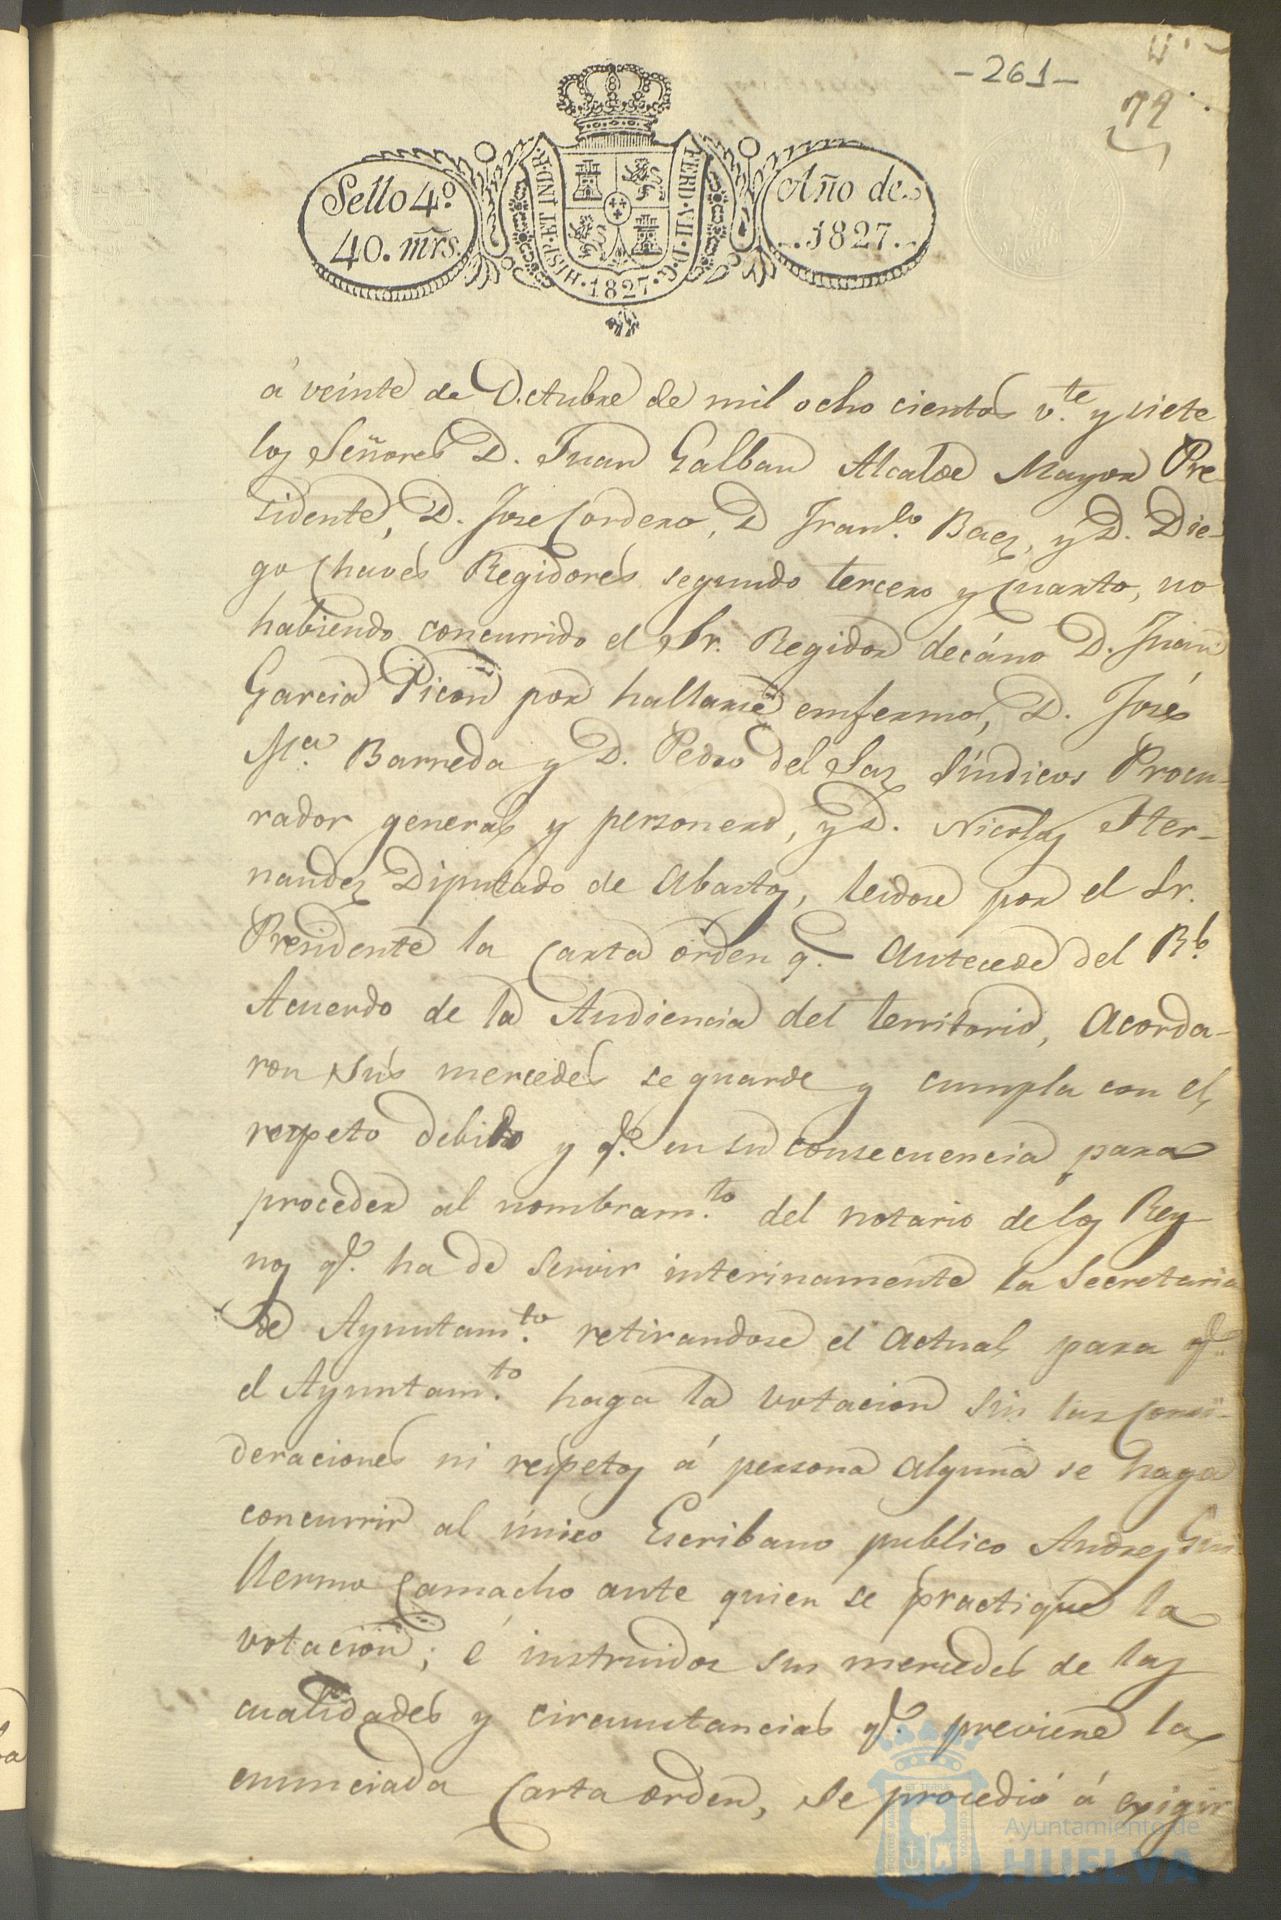 -261-
79
Sello 4.º
40. mrs.
HISP. ET IND. R.
FERD. VII. D. G.
1827
Año de
1827.
á veinte de Octubre de mil ocho cientos v.te y siete
los Señores D. Juan Galban Alcalde Mayor Pre-
sidente, D. Jose Cordero, D Fran.co Baez, y D. Die-
go Chaves Regidores segundo tercero y cuarto, no
habiendo concurrido el Sr. Regidor decáno D. Juan
Garcia Picon por hallarse enfermo, D. José
M.a Barreda y D. Pedro del Saz Síndicos Procu-
rador general y personero, y D. Nicolas Her-
nandez Diputado de Abastos, leidose por el Sr.
Presidente la Carta orden q.e antecede del Rl.
Acuerdo de la Audiencia del territorio, Acorda-
ron sus mercedes se guarde y cumpla con el
respeto debido y q.e en su consecuencia para
proceder al nombram.to del notario de los Rey-
nos q.e ha de servir interinamente la Secretaria
de Ayuntam.to retirandose el actual para q.e
el Ayuntam.to haga la votacion sin las consi-
deraciones ni respetos á persona alguna se haga
concurrir al único Escribano publico Andres Gui
llermo Camacho ante quien se practique la
votacion; é instruidos sus mercedes de las
cualidades y circunstancias q.e previene la
enunciada Carta orden, se procedió á exigir
Ayuntamiento de
HUELVA